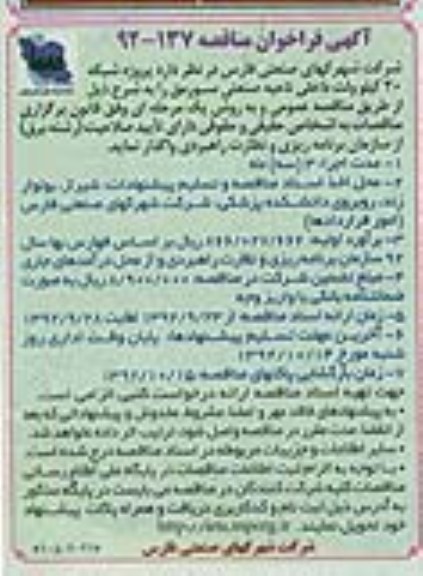 آگهی فراخوان مناقصه ۱۳۷-۹۲
شرکت شهرکهای صنعتی فارس در نظر دارد پروژه شبکه
۲۰ کیلو ولت داخلی ناحیه صنعتی به شرح ذیل
از طریق مناقصه عمومی و به روش یک مرحله ای وفق قانون برگزاری
مناقصات به اشخاص حقیقی و حقوقی دارای تأیید صلاحیت (رشته برق)
از سازمان برنامه ریزی و نظارت راهبردی واگذار نماید.
۱- مدت اجرا: ۳ (سه) ماه
۲- محل اخذ اسناد مناقصه و تسلیم پیشنهادات: شیراز، بولوار
زند، روبروی دانشکده پزشکی، شرکت شهرکهای صنعتی فارس
(امور قراردادها)
۳- برآورد اولیه: ریال بر اساس فهارس بها سال
۹۲ سازمان برنامه ریزی و نظارت راهبردی و از محل درآمدهای جاری
۴- مبلغ تضمین شرکت در مناقصه: ریال به صورت
ضمانتنامه بانکی یا واریز وجه
۵- زمان ارائه اسناد مناقصه: از ۱۳۹۲/۹/۲۳ لغایت ۱۳۹۲/۹/۲۸
۶- آخرین مهلت تسلیم پیشنهادها: پایان وقت اداری روز
شنبه مورخ ۱۳۹۲/۱۰/۱۴
۷- زمان بازگشایی پاکتهای مناقصه: ۱۳۹۲/۱۰/۱۵
جهت تهیه اسناد مناقصه ارائه درخواست کتبی الزامی است.
• به پیشنهادهای فاقد مهر و امضا، مشروط، مخدوش و پیشنهاداتی که بعد
از انقضا مدت مقرر در مناقصه واصل شود، ترتیب اثر داده نخواهد شد.
• سایر اطلاعات و جزییات مربوطه در اسناد مناقصه درج شده است.
• با توجه به الزام ثبت اطلاعات مناقصات در پایگاه ملی اطلاع رسانی
مناقصات کلیه شرکت کنندگان در مناقصه می بایست در پایگاه مذکور
به آدرس ذیل ثبت نام و کدکاربری دریافت و همراه پاکت پیشنهاد
خود تحویل نمایند.
شرکت شهرکهای صنعتی فارس